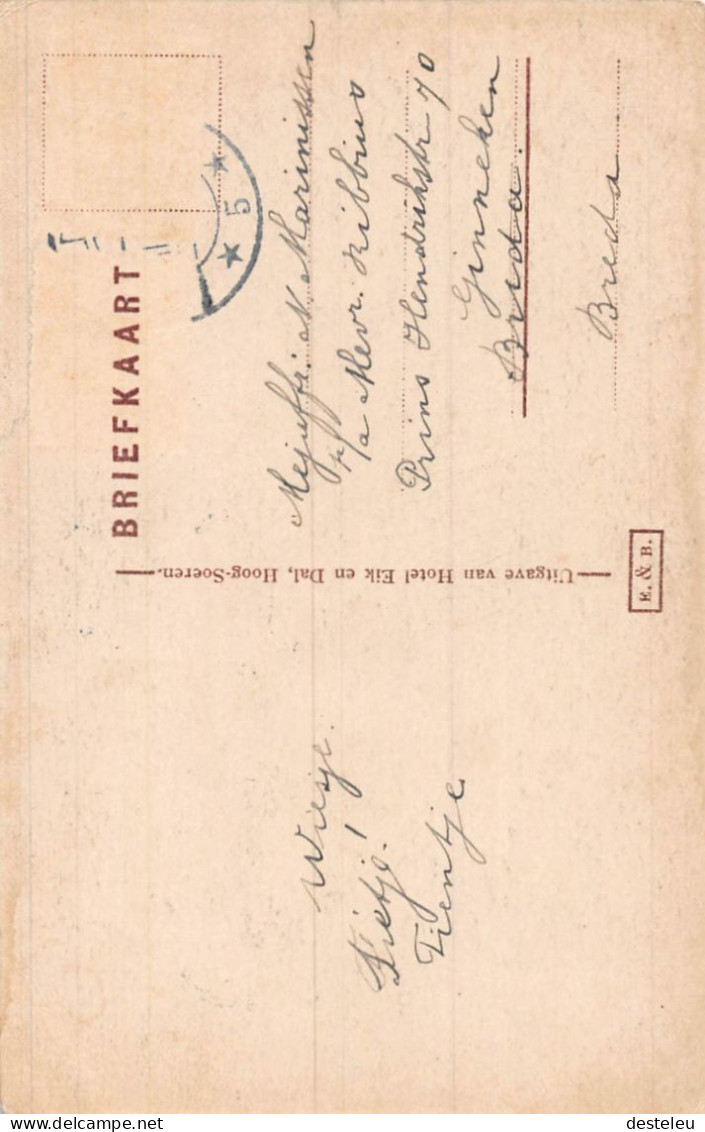 BRIEFKAART
5
Mejuffr. N Marinissen
p/a Mevr. Ribbius
Prins Hendrikstr 70
Ginneken
Breda.
Breda
Uitgave van Hotel Eik en Dal, Hoog-Soeren.
E. & B.
Wiesje.
Fietje!
Tientje
desteleu